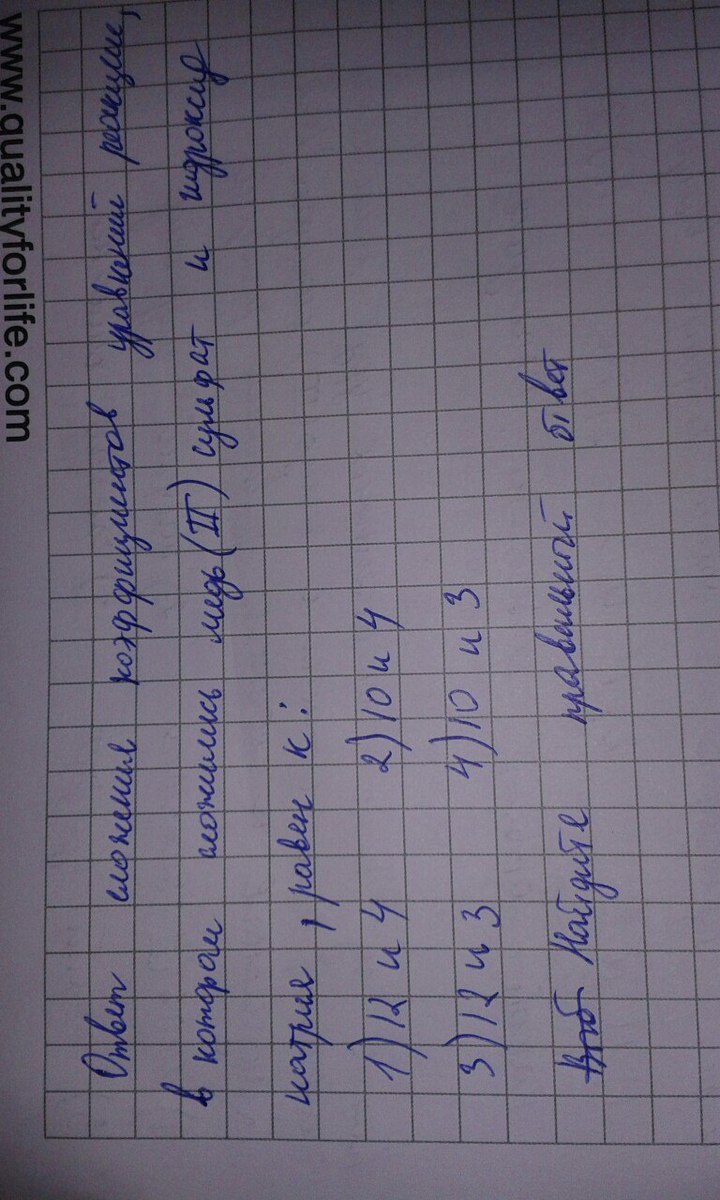 www.qualityforlife.com
Ответ сложения коэффициентов уравнений реакции,
в котором сложились медь (II) сульфат и гидроксид
натрия, равен к:
1) 12 и 4 2) 10 и 4
3) 12 и 3 4) 10 и 3
Найдите правильный ответ